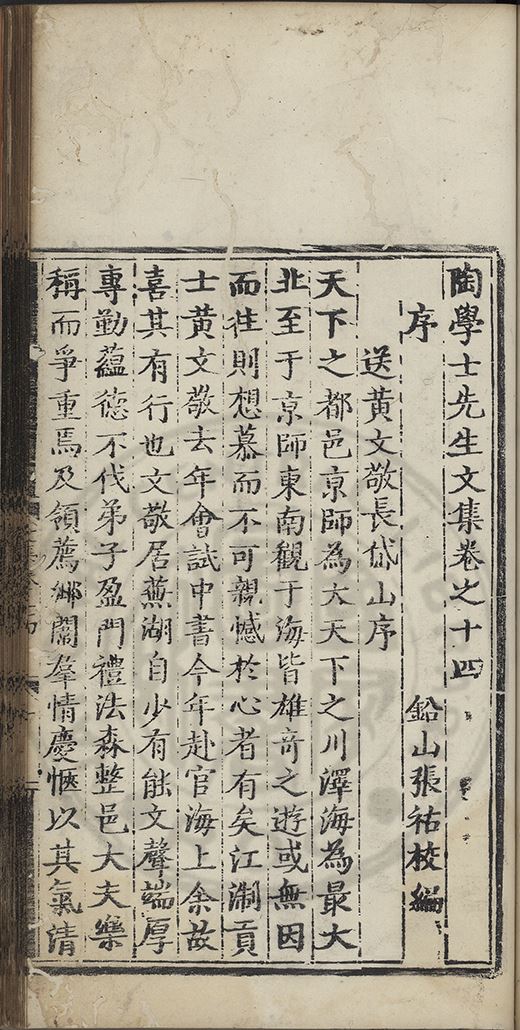 陶學士先生文集卷之十四
序　鉛山張祐校編
送黃文敬長岱山序
天下之都邑京師為大天下之川澤海為最大
北至于京師東南觀于海皆雄竒之遊或無因
而徃則想慕而不可親憾於心者有矣江淛貢
士黃文敬去年會試中書今年赴官海上余故
喜其有行也文敬居蕪湖自少有能文聲端厚
專勤蘊德不伐弟子盈門禮法森整邑大夫樂
稱而爭重焉及領薦鄉閭羣情慶愜以其氣清